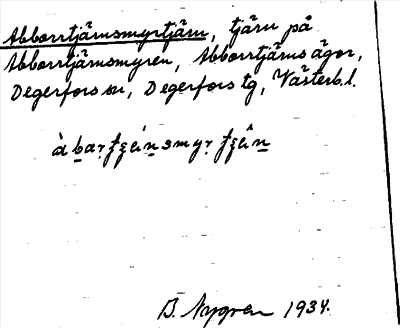 Abborrtjärnsmyrtjärn, tjärn på
Abborrtjärnsmyren, Abborrtjärns ägor,
Degerfors sn, Degerfors tg, Västerb. l.
B. Nygren 1934.